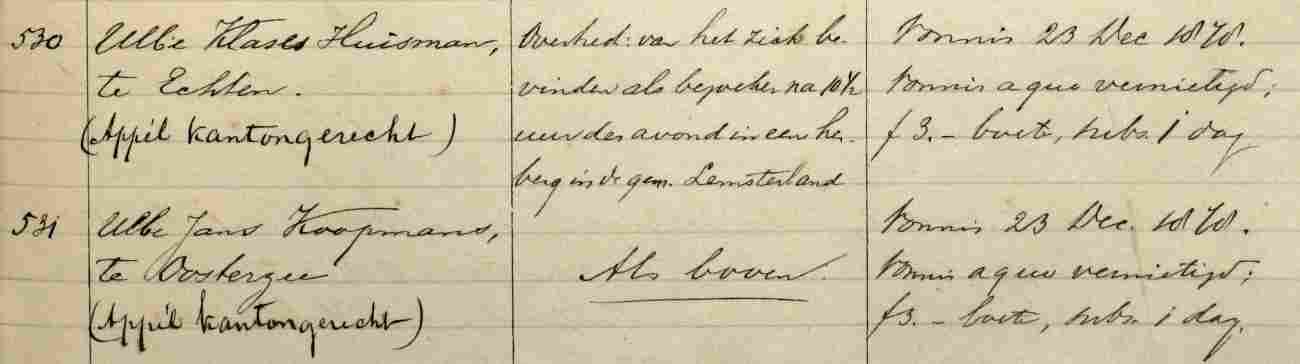 530 Ulbe Klases Huisman,
te Echten.
(Appèl kantongerecht)
Overtred: van het zich be-
vinden als bezoeker na 10 1/2
uur des avond in een her-
berg in de gem. Lemsterland
Vonnis 23 Dec 1878.
Vonnis a quo vernietigd;
f 3.- boete, subs. 1 dag
531 Ulbe Jans Koopmans,
te Oosterzee
(Appèl kantongerecht)
Als boven.
Vonnis 23 Dec. 1878.
Vonnis a quo vernietigd;
f 3.- boete, subs. 1 dag.